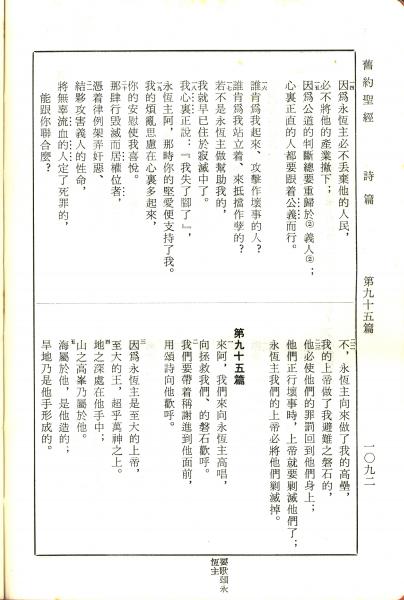 舊約聖經　詩篇　第九十五篇　一〇九二
一四因爲永恆主必不丟棄他的人民，
必不將他的產業撇下；
一五因爲公道的判斷總要重歸於②義人②；
心裏正直的人都要跟着公義而行。
一六誰肯爲我起來、攻擊作壞事的人？
誰肯爲我站立着、來抵擋作孽的？
一七若不是永恆主做幫助我的，
我就早已住於寂滅中了。
一八我心裏正說：『我失了腳了』
永恆主阿，那時你的堅愛便支持了我。
一九我的煩亂思慮在心裏多起來，
你的安慰使我喜悅。
二〇那肆行毀滅而居權位者，
憑着律例架弄奸惡、
二一結夥攻害義人的性命，
將無辜流血的人定了死罪的，
能跟你聯合麼？
二二不，永恆主向來做了我的高壘，
我的上帝做了我避難之磐石的，
二三他必使他們的罪罰回到他們身上；
他們正行壞事時，上帝就要剿滅他們了；
永恆主我們的上帝必將他們剿滅掉。
第九十五篇
一來阿，我們來向永恆主高唱，
向拯救我們、的磐石歡呼。
二我們要帶着稱謝進到他面前，
用頌詩向他歡呼。
三因爲永恆主是至大的上帝，
至大的王，超乎萬神之上。
四地之深處在他手中；
山之高峯乃屬於他。
五海屬於他，是他造的；
旱地乃是他手形成的。
要歌頌永恆主